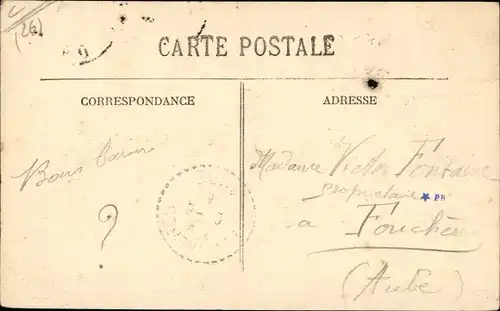 (26)
9
CARTE POSTALE
CORRESPONDANCE
ADRESSE
Bons
?
Madame Victor Fontaine
propriétaire
PB
a Fouchères
(Aube)